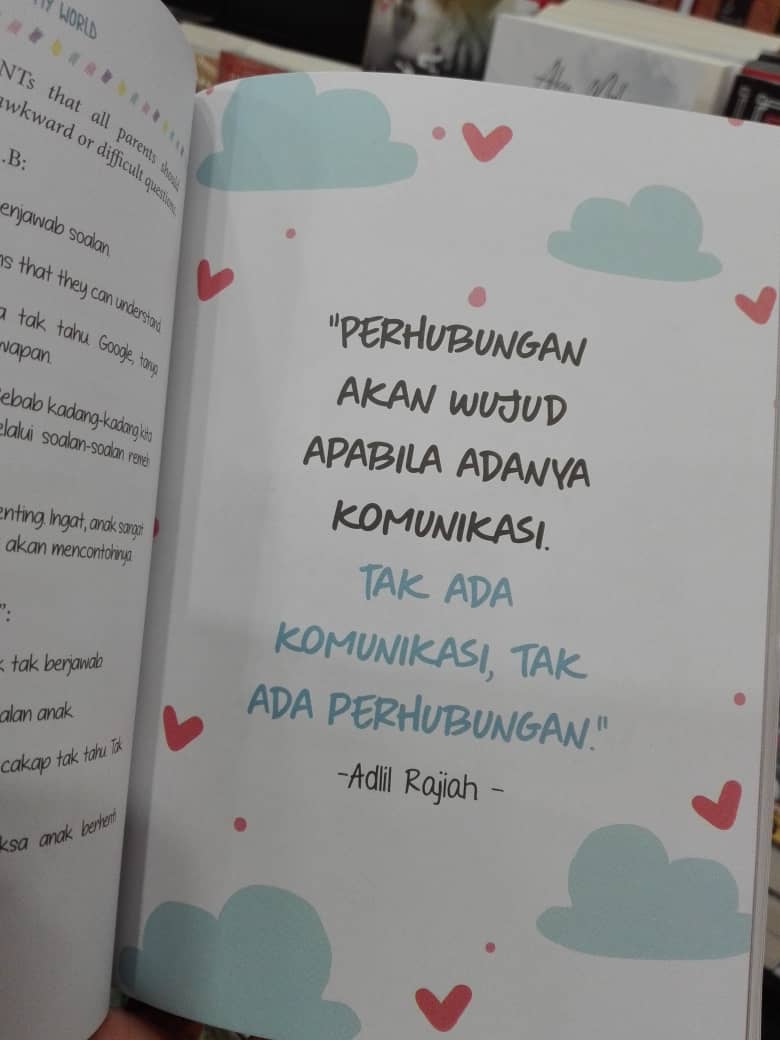 MY WORLD
NTs that all parents should
awkward or difficult questions.
.B:
enjawab soalan.
ns that they can understand
a tak tahu. Google, tanya
wapan.
ebab kadang-kadang kita
elalui soalan-soalan remeh
enting. Ingat, anak sangat
akan mencontohinya.
":
k tak berjawab
alan anak
cakap tak tahu. Tak
ksa anak berhenti
"PERHUBUNGAN
AKAN WUJUD
APABILA ADANYA
KOMUNIKASI.
TAK ADA
KOMUNIKASI, TAK
ADA PERHUBUNGAN."
-Adlil Rajiah -